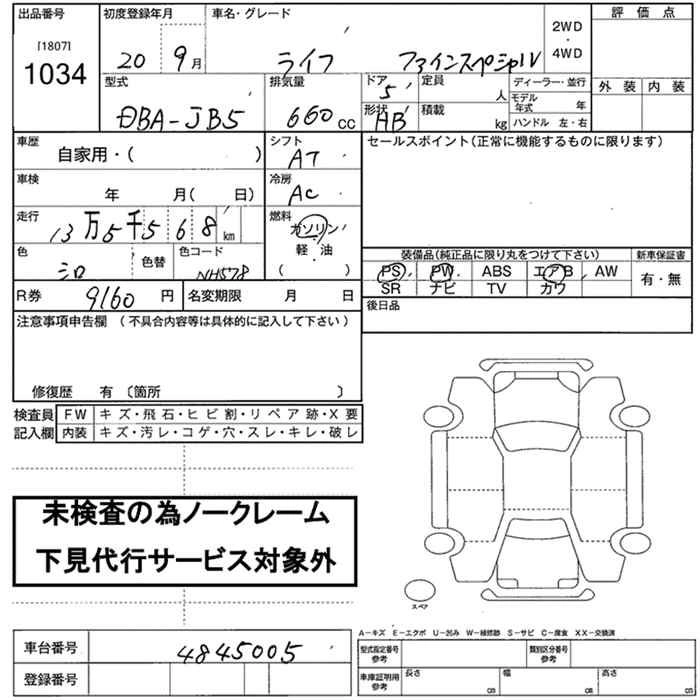 出品番号 初度登録年月 車名・グレード 2WD・4WD 評価点
[1807]
1034
20 9月 ライフ ファインスペシャル
外装 内装
型式 排気量 ドア 定員 ディーラー・並行
5 人 モデル年式 年
DBA-JB5 660cc 形状 積載 ハンドル 左・右
HB kg
車歴 シフト セールスポイント(正常に機能するものに限ります)
自家用・( ) AT
車検 冷房
年 月( 日) AC
走行 燃料
13万5千568km ガソリン
軽・油
( )
色 色替 色コード 装備品(純正品に限り丸をつけて下さい) 新車保証書
シロ NH578 PS PW ABS エアB AW 有・無
SR ナビ TV カワ
R券 9160円 名変期限 月 日
後日品
注意事項申告欄 (不具合内容等は具体的に記入して下さい)
修復歴 有 〔箇所 〕
検査員 FW キズ・飛石・ヒビ割・リペア跡・X要
記入欄 内装 キズ・汚レ・コゲ・穴・スレ・キレ・破レ
未検査の為ノークレーム
下見代行サービス対象外
スペア
A-キズ E-エクボ U-凹み W-補修跡 S-サビ C-腐食 XX-交換済
車台番号 4845005 型式指定番号参考 類別区分番号参考
登録番号 車庫証明用参考 長さ cm 幅 cm 高さ cm